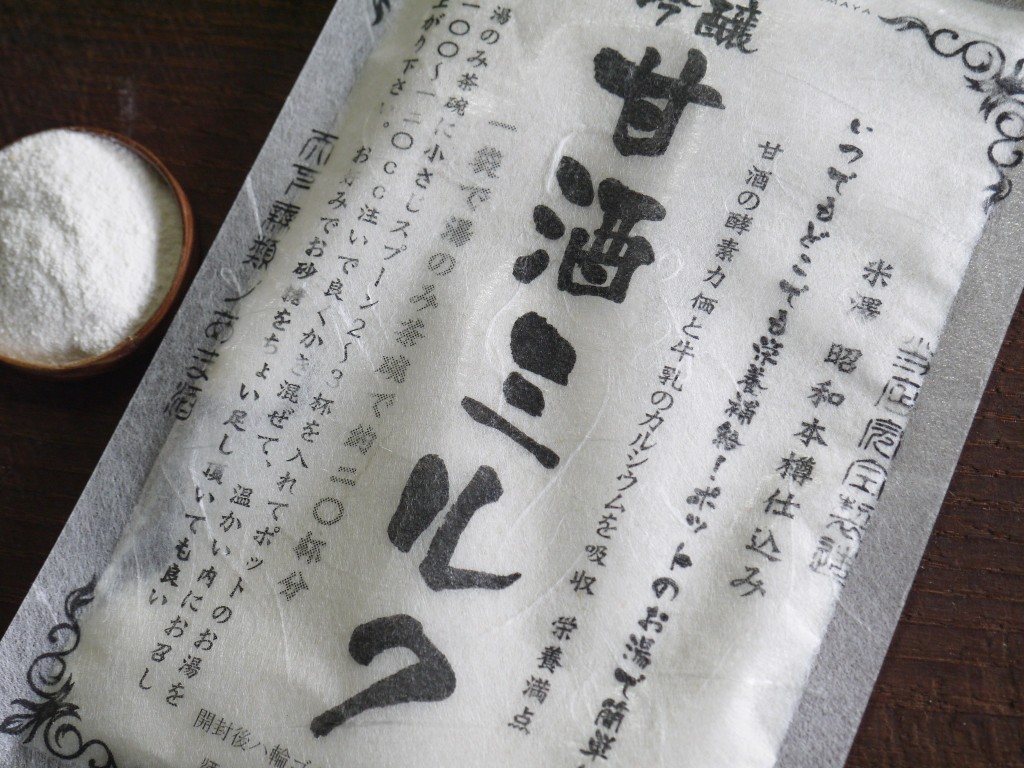 米澤 昭和本樽仕込み
いつでもどこでも栄養補給！ポットのお湯で簡単
甘酒の酵素力価と牛乳のカルシウムを吸収 栄養満点
吟醸
甘酒ミルク
一袋で湯のみ茶碗で約二〇杯分
湯のみ茶碗に小さじスプーン2〜3杯を入れてポットのお湯を
一〇〇〜一二〇cc注いで良くかき混ぜて、温かい内にお召し
上がり下さい。お好みでお砂糖をちょい足し頂いても良い
開封後ハ輪ゴ